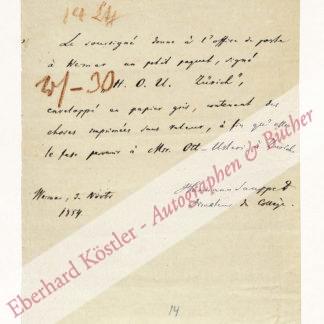 14 L4
Le soussigné donne à l'office de poste
à Weimar un petit paquet, signé
w/-30 H. O. U. Zürich",
enveloppé en papier gris, contenant des
choses imprimées sans valeur, à fin qu'elle
le fasse parvenir à Msr. Ott-Usteri à Zurich
Weimar, 3. Novbr
1854.
Hermann Sauppe
Directeur du Collège.
Eberhard Köstler - Autographen & Bücher
14